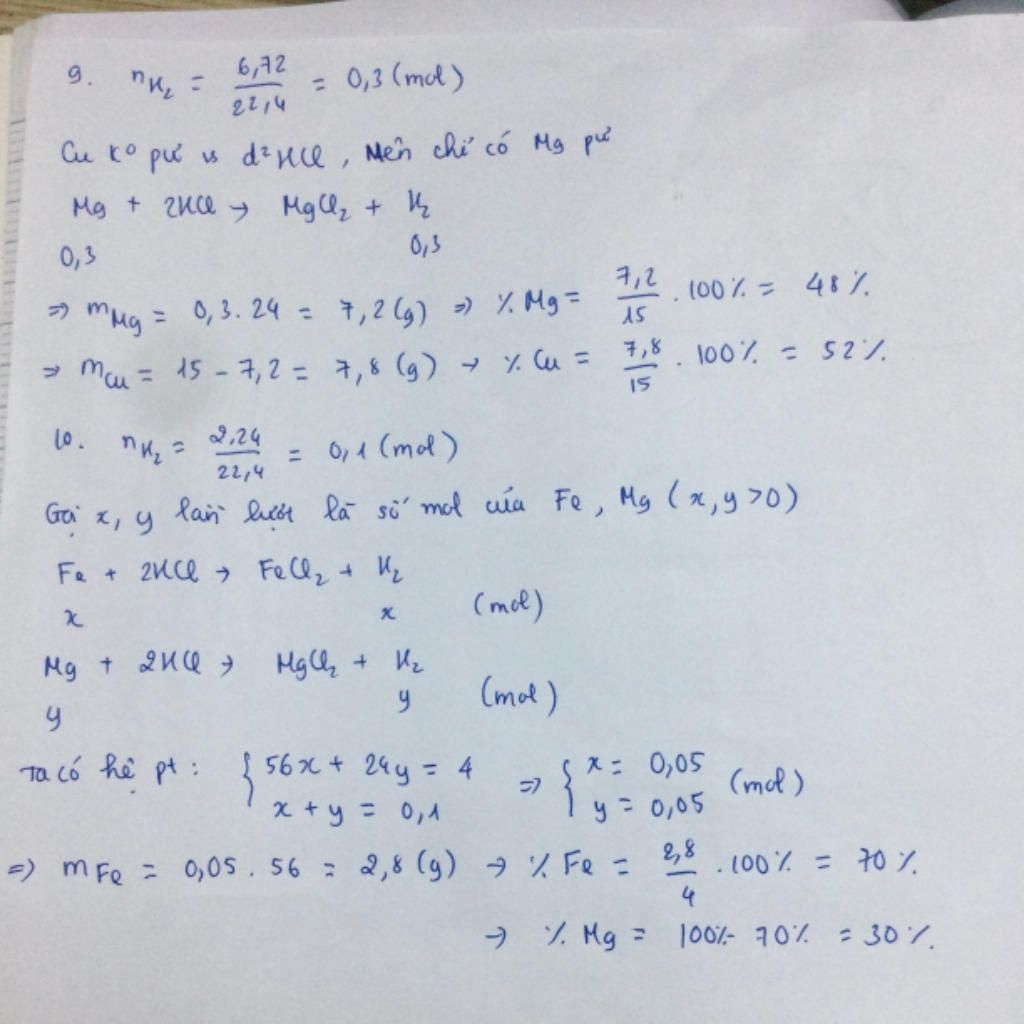 9. nH₂ = 6,72/22,4 = 0,3 (mol)
Cu k⁰ pứ vs d²HCl, nên chỉ có Mg pứ
Mg + 2HCl → MgCl₂ + H₂
0,3 0,3
⇒ mMg = 0,3.24 = 7,2 (g) ⇒ % Mg = 7,2/15 . 100% = 48%.
⇒ mCu = 15 - 7,2 = 7,8 (g) → % Cu = 7,8/15 . 100% = 52%.
10. nH₂ = 2,24/22,4 = 0,1 (mol)
Gọi x, y lần lượt là số mol của Fe, Mg (x, y >0)
Fe + 2HCl → FeCl₂ + H₂
x x (mol)
Mg + 2HCl → MgCl₂ + H₂
y y (mol)
Ta có hệ pt: { 56x + 24y = 4 ⇒ { x = 0,05 (mol)
x + y = 0,1 y = 0,05
⇒ mFe = 0,05. 56 = 2,8 (g) → % Fe = 2,8/4 . 100% = 70%.
→ % Mg = 100% - 70% = 30%.